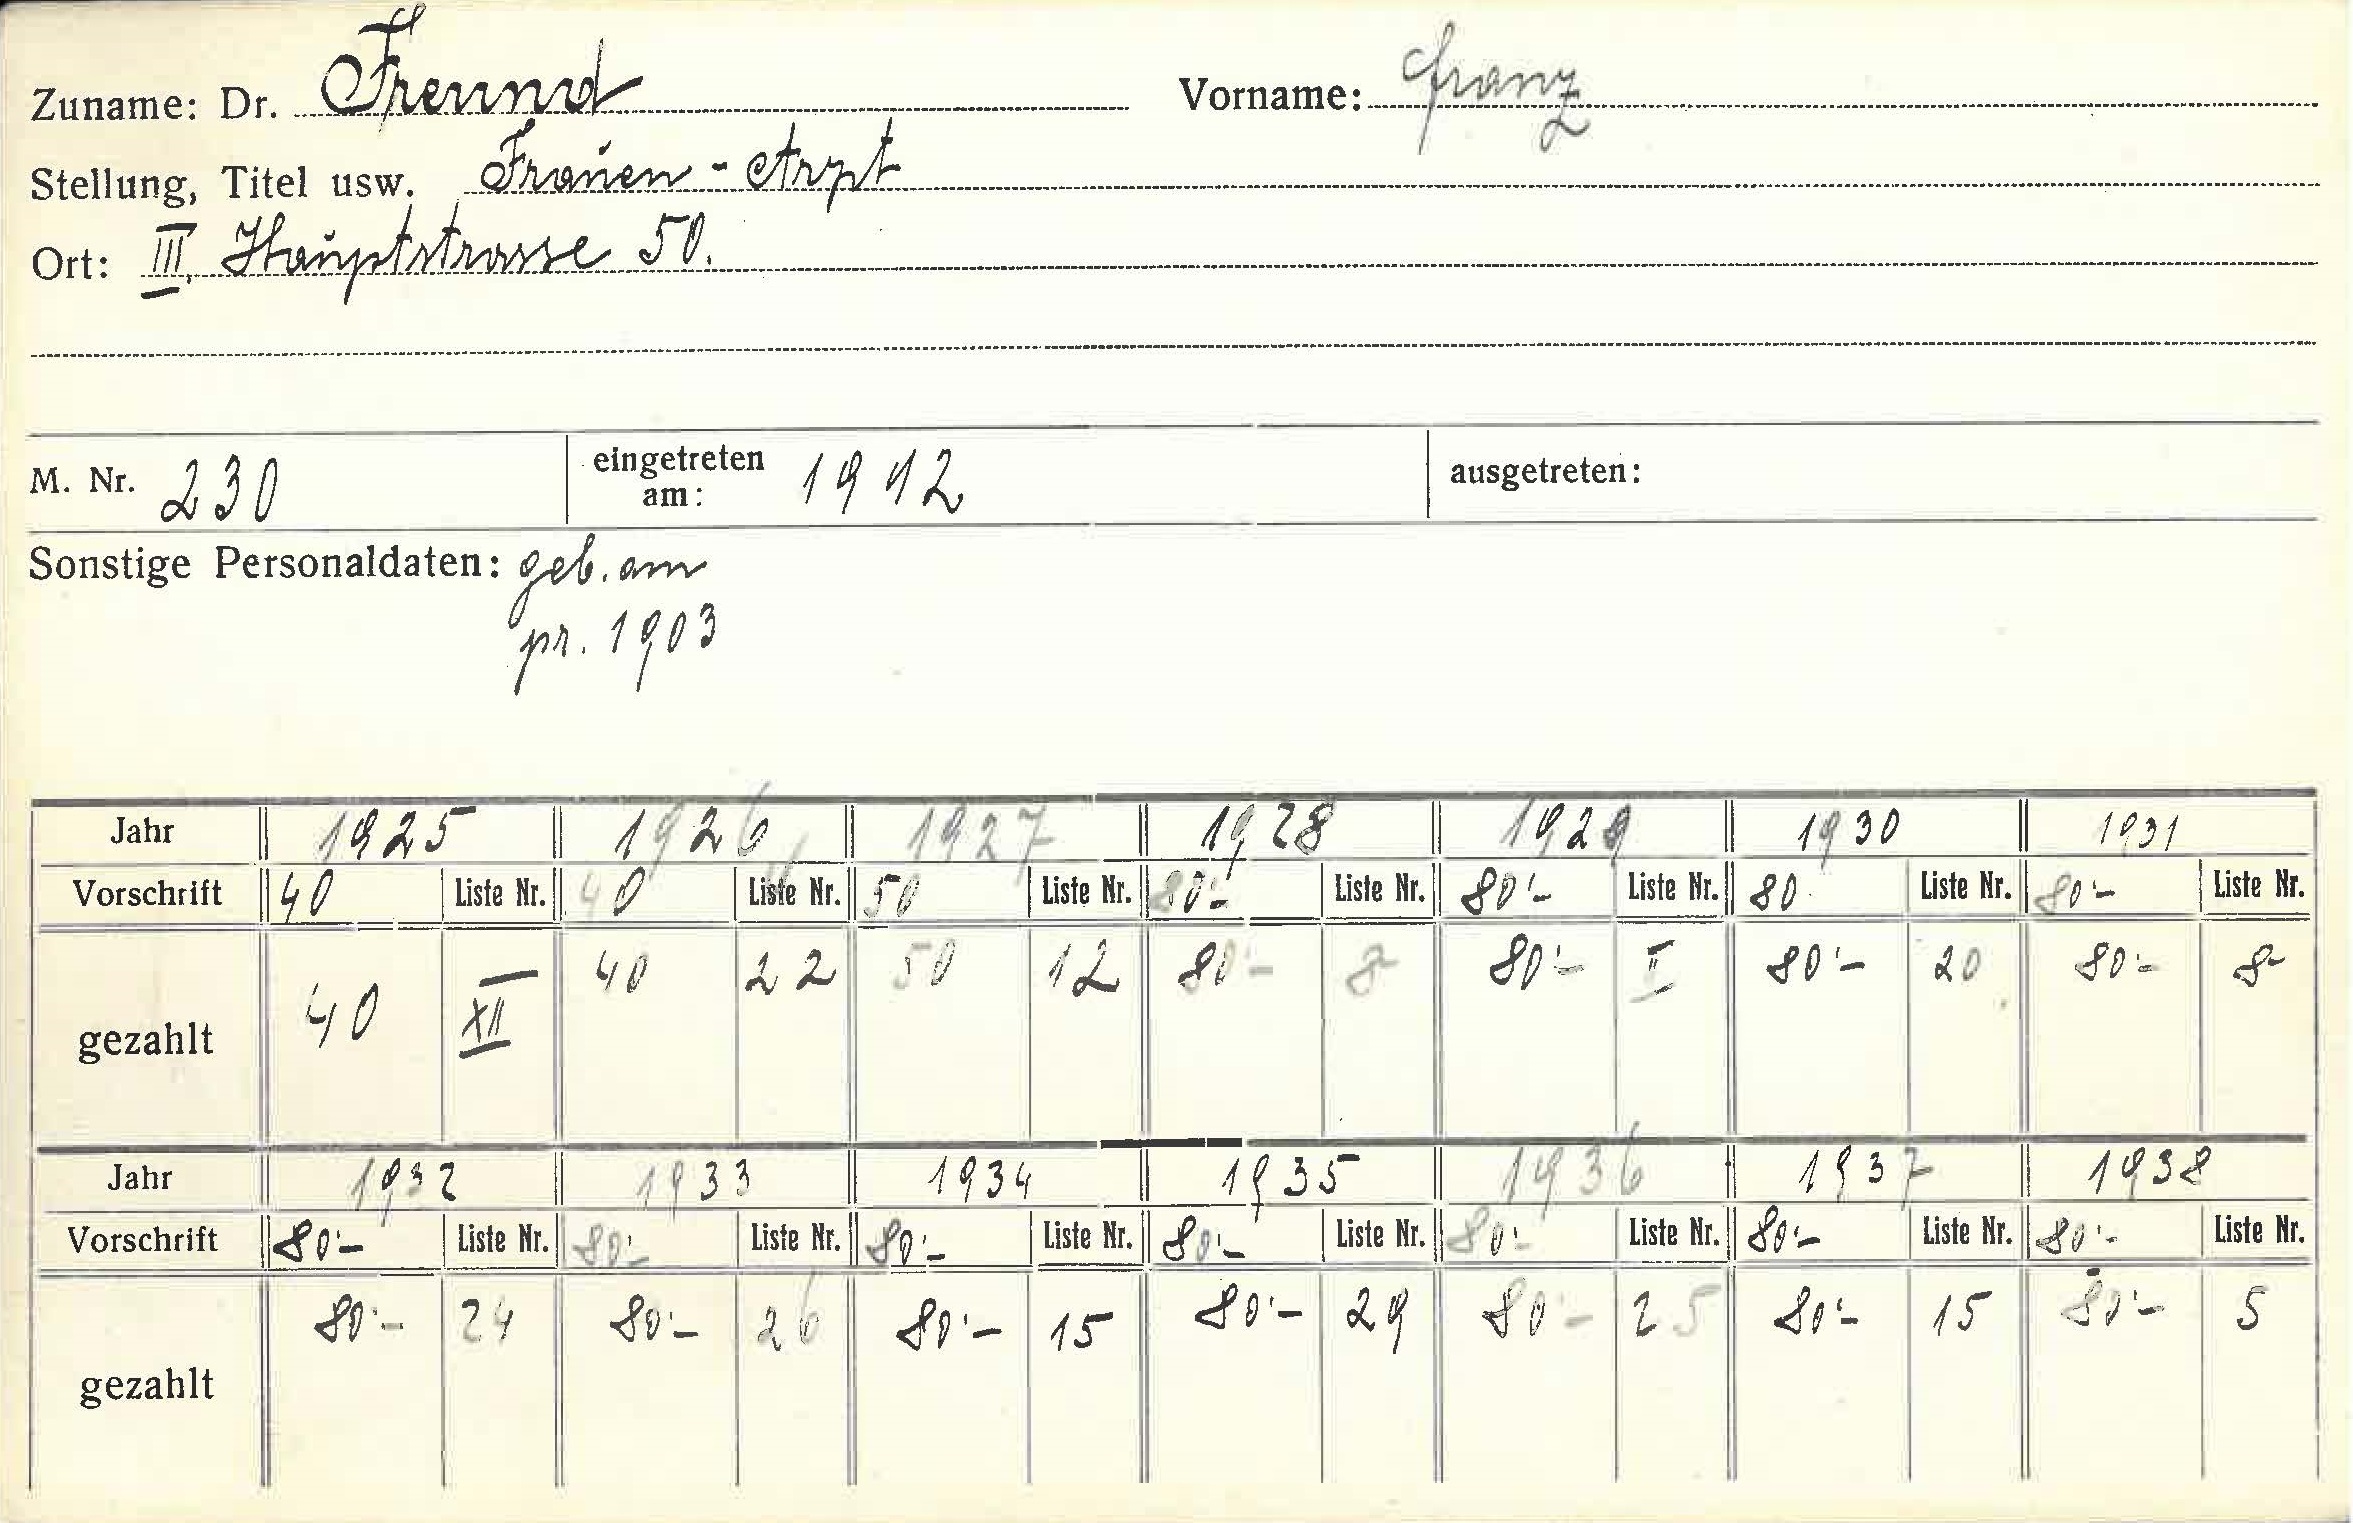 Zuname: Dr. Freund Vorname: Franz
Stellung, Titel usw. Frauen-Arzt
Ort: III. Hauptstrasse 50.
M. Nr. 230 eingetreten am: 1912 ausgetreten:
Sonstige Personaldaten: geb. am
pr. 1903
Jahr 1925 1926 1927 1928 1929 1930 1931
Vorschrift 40 Liste Nr. 40 Liste Nr. 50 Liste Nr. 80'- Liste Nr. 80'- Liste Nr. 80 Liste Nr. 80'- Liste Nr.
gezahlt 40 XII 40 22 50 12 80'- 8 80'- II 80'- 20 80'- 8
Jahr 1932 1933 1934 1935 1936 1937 1938
Vorschrift 80'- Liste Nr. 80'- Liste Nr. 80'- Liste Nr. 80'- Liste Nr. 80'- Liste Nr. 80'- Liste Nr. 80'- Liste Nr.
gezahlt 80'- 24 80'- 26 80'- 15 80'- 29 80'- 25 80'- 15 80'- 5